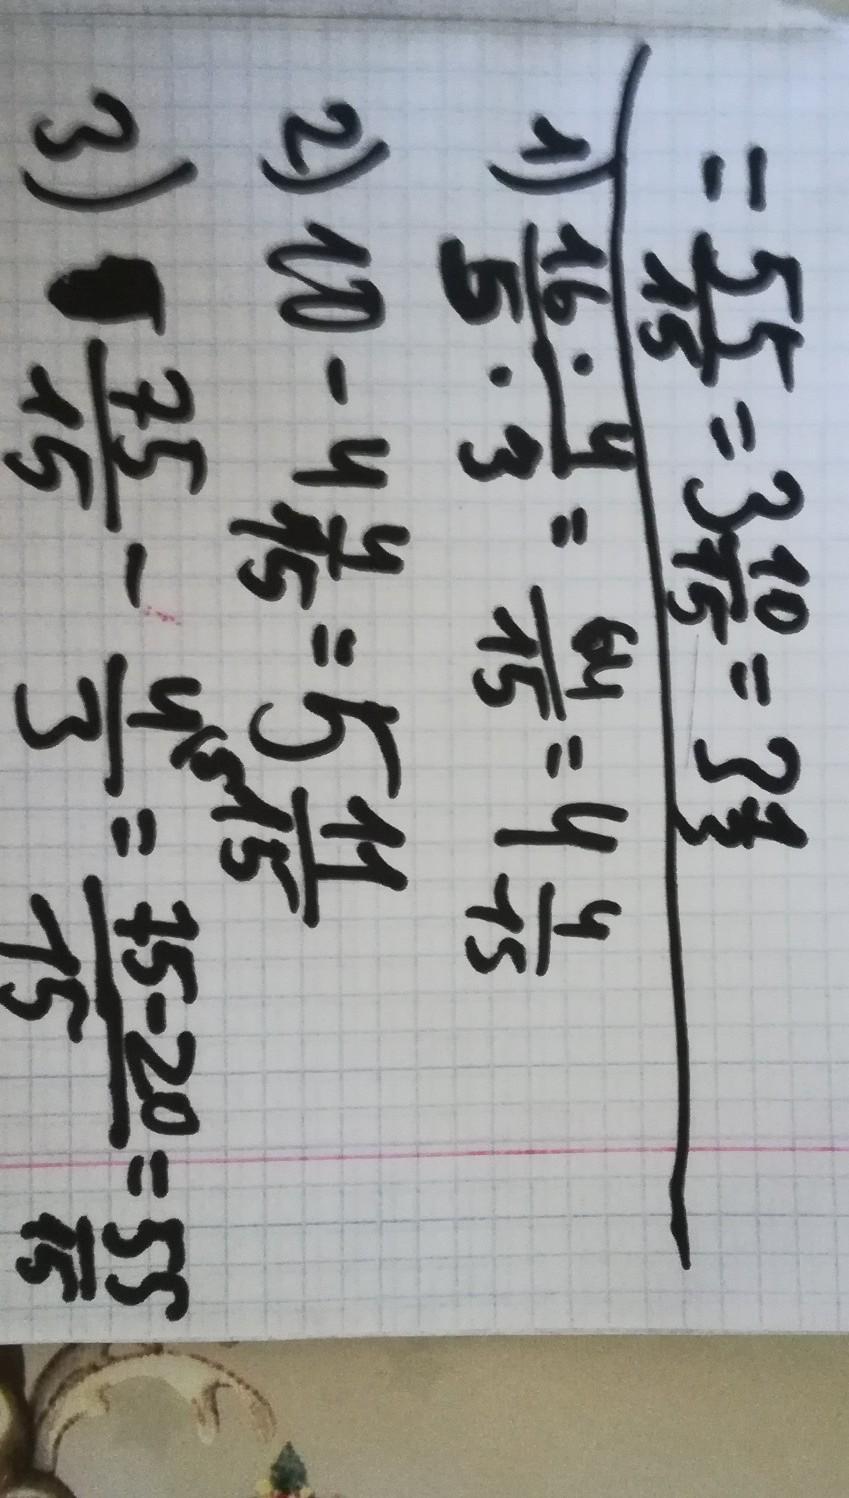 = 55/15 = 3 10/15 = 3 1/3
1) 16 · 4 / 5 · 3 = 64/15 = 4 4/15
2) 10 - 4 4/15 = 5 11/15
3) 75/15 - 4/3 (5 = 75-20/15 = 55/15